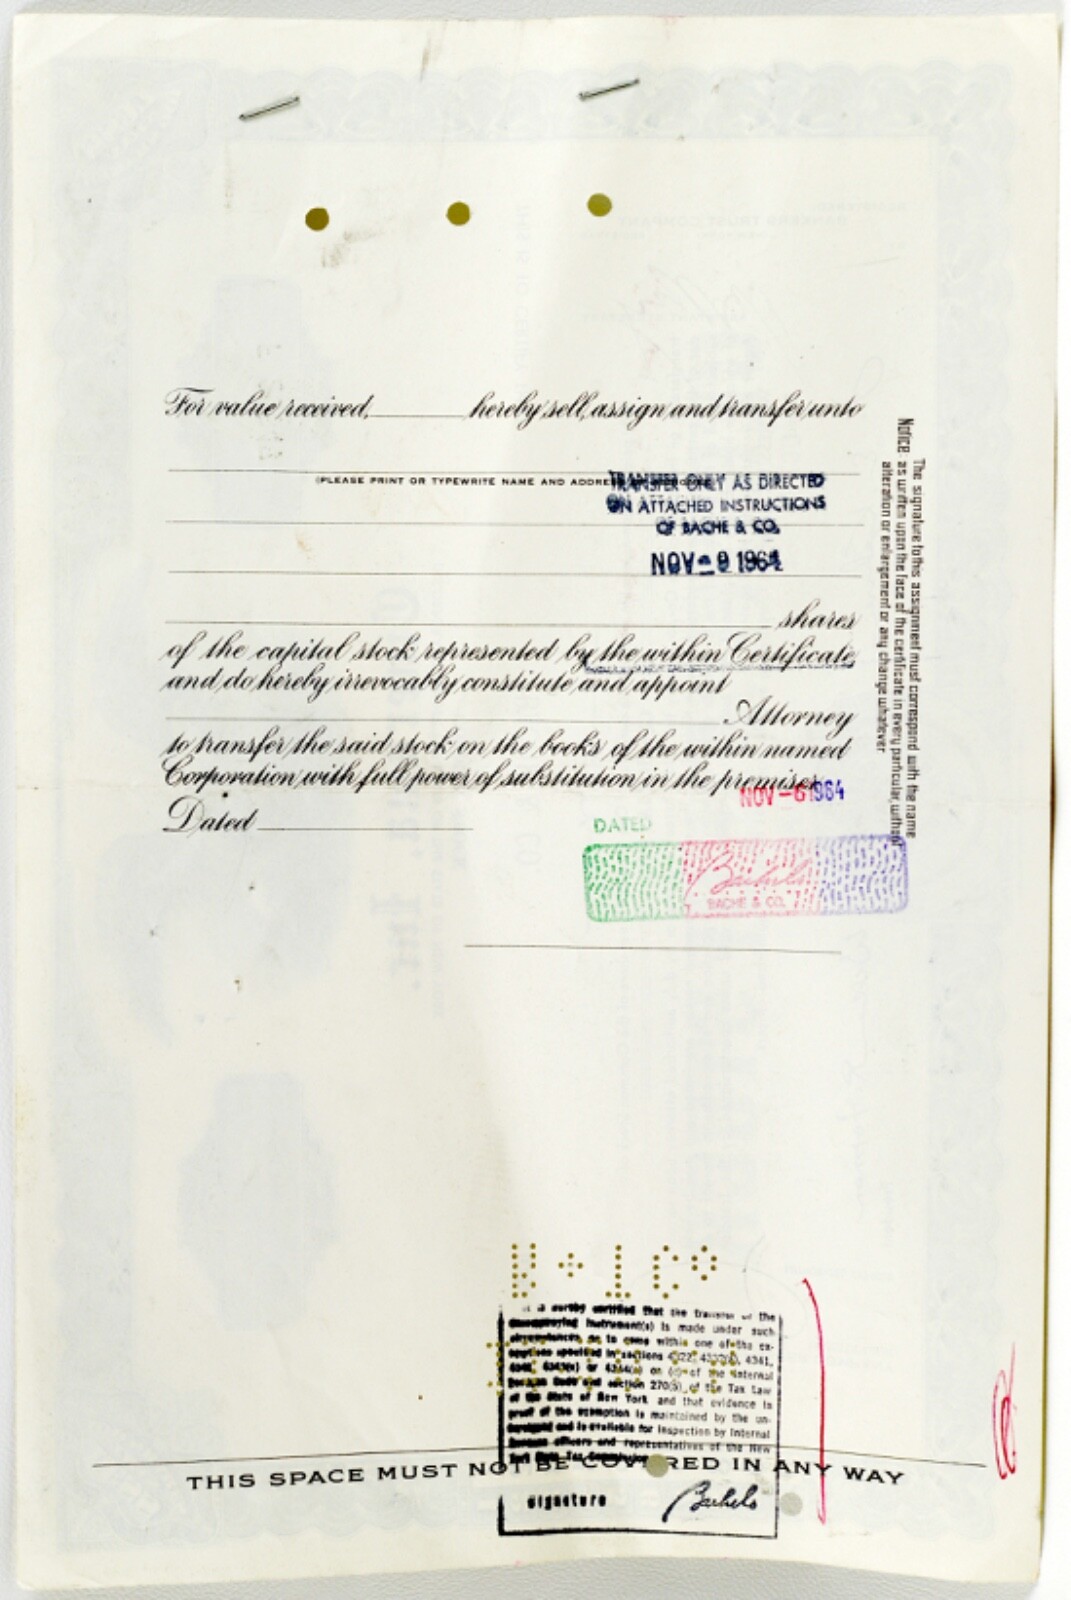 For value received, hereby sell, assign and transfer unto
(PLEASE PRINT OR TYPEWRITE NAME AND ADDRESS
TRANSFER ONLY AS DIRECTED
ON ATTACHED INSTRUCTIONS
OF BACHE & CO.
NOV - 9 1964
shares
of the capital stock represented by the within Certificate,
and do hereby irrevocably constitute and appoint
Attorney
to transfer the said stock on the books of the within named
Corporation with full power of substitution in the premises
NOV - 6 1964
Dated
DATED
BACHE & CO.
Notice: The signature to this assignment must correspond with the name
as written upon the face of the certificate in every particular, without
alteration or enlargement or any change whatever
It is hereby certified that the transfer of the
instrument(s) is made under such
circumstances as to come within one of the ex-
emptions specified in sections
of the Internal
Revenue Code and section 270 of the Tax Law
of the State of New York and that evidence in
proof of the exemption is maintained by the un-
dersigned and is available for inspection by Internal
Revenue officers and representatives of the New
York State Tax Commission
THIS SPACE MUST NOT BE COVERED IN ANY WAY
Signature